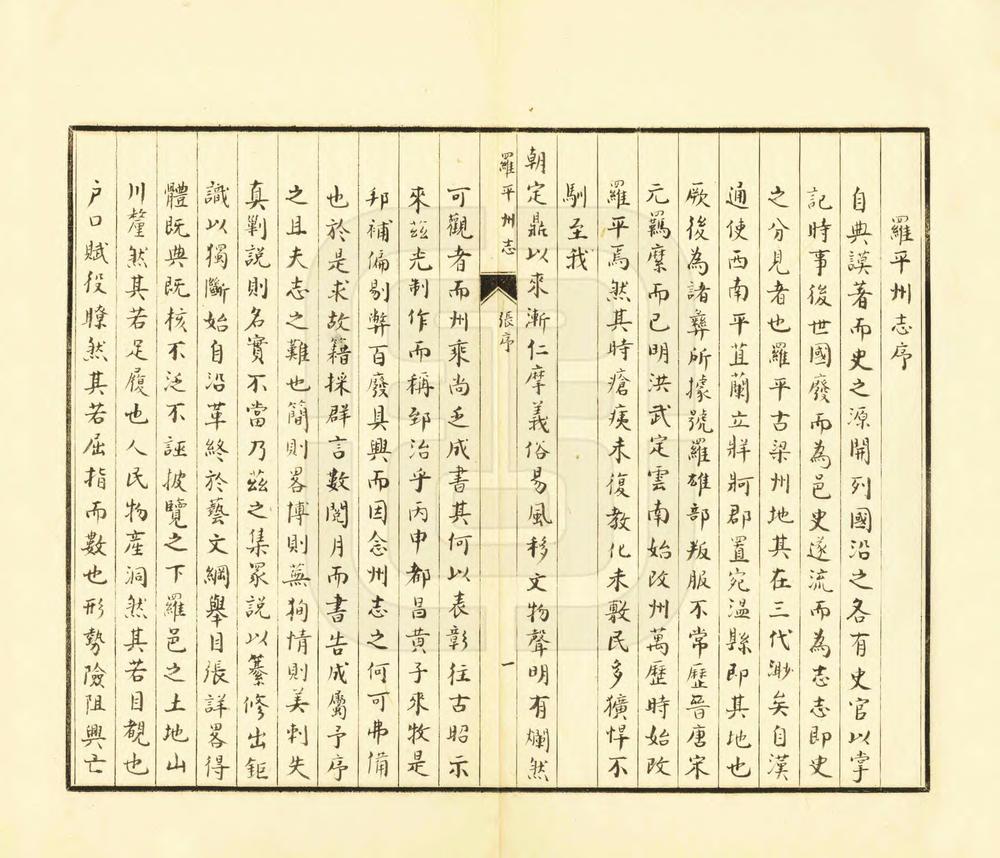 羅平州志序
自典謨著而史之源開列國沿之各有史官以掌
記時事後世國廢而為邑史遂流而為志志即史
之分見者也羅平古梁州地其在三代渺矣自漢
通使西南平苴蘭立牂牁郡置宛溫縣即其地也
厥後為諸彝所據號羅雄部叛服不常歷晉唐宋
元羈縻而已明洪武定雲南始改州萬歷時始改
羅平焉然其時瘡痍未復教化未敷民多獷悍不
馴至我
朝定鼎以來漸仁摩義俗易風移文物聲明有斕然
羅平州志 張序 一
可觀者而州乘尚乏成書其何以表彰往古昭示
來茲光制作而稱郅治乎丙申都昌黄子來牧是
邦補偏剔弊百廢具興而因念州志之何可弗備
也於是求故籍採群言數閱月而書告成屬予序
之且夫志之難也簡則畧博則蕪狥情則美刺失
真剿說則名實不當乃茲之集衆說以纂修出鉅
識以獨斷始自沿革終於藝文綱舉目張詳畧得
體既典既核不泛不誣披覽之下羅邑之土地山
川釐然其若足履也人民物產洞然其若目覩也
户口賦役瞭然其若屈指而數也形勢險阻興亡